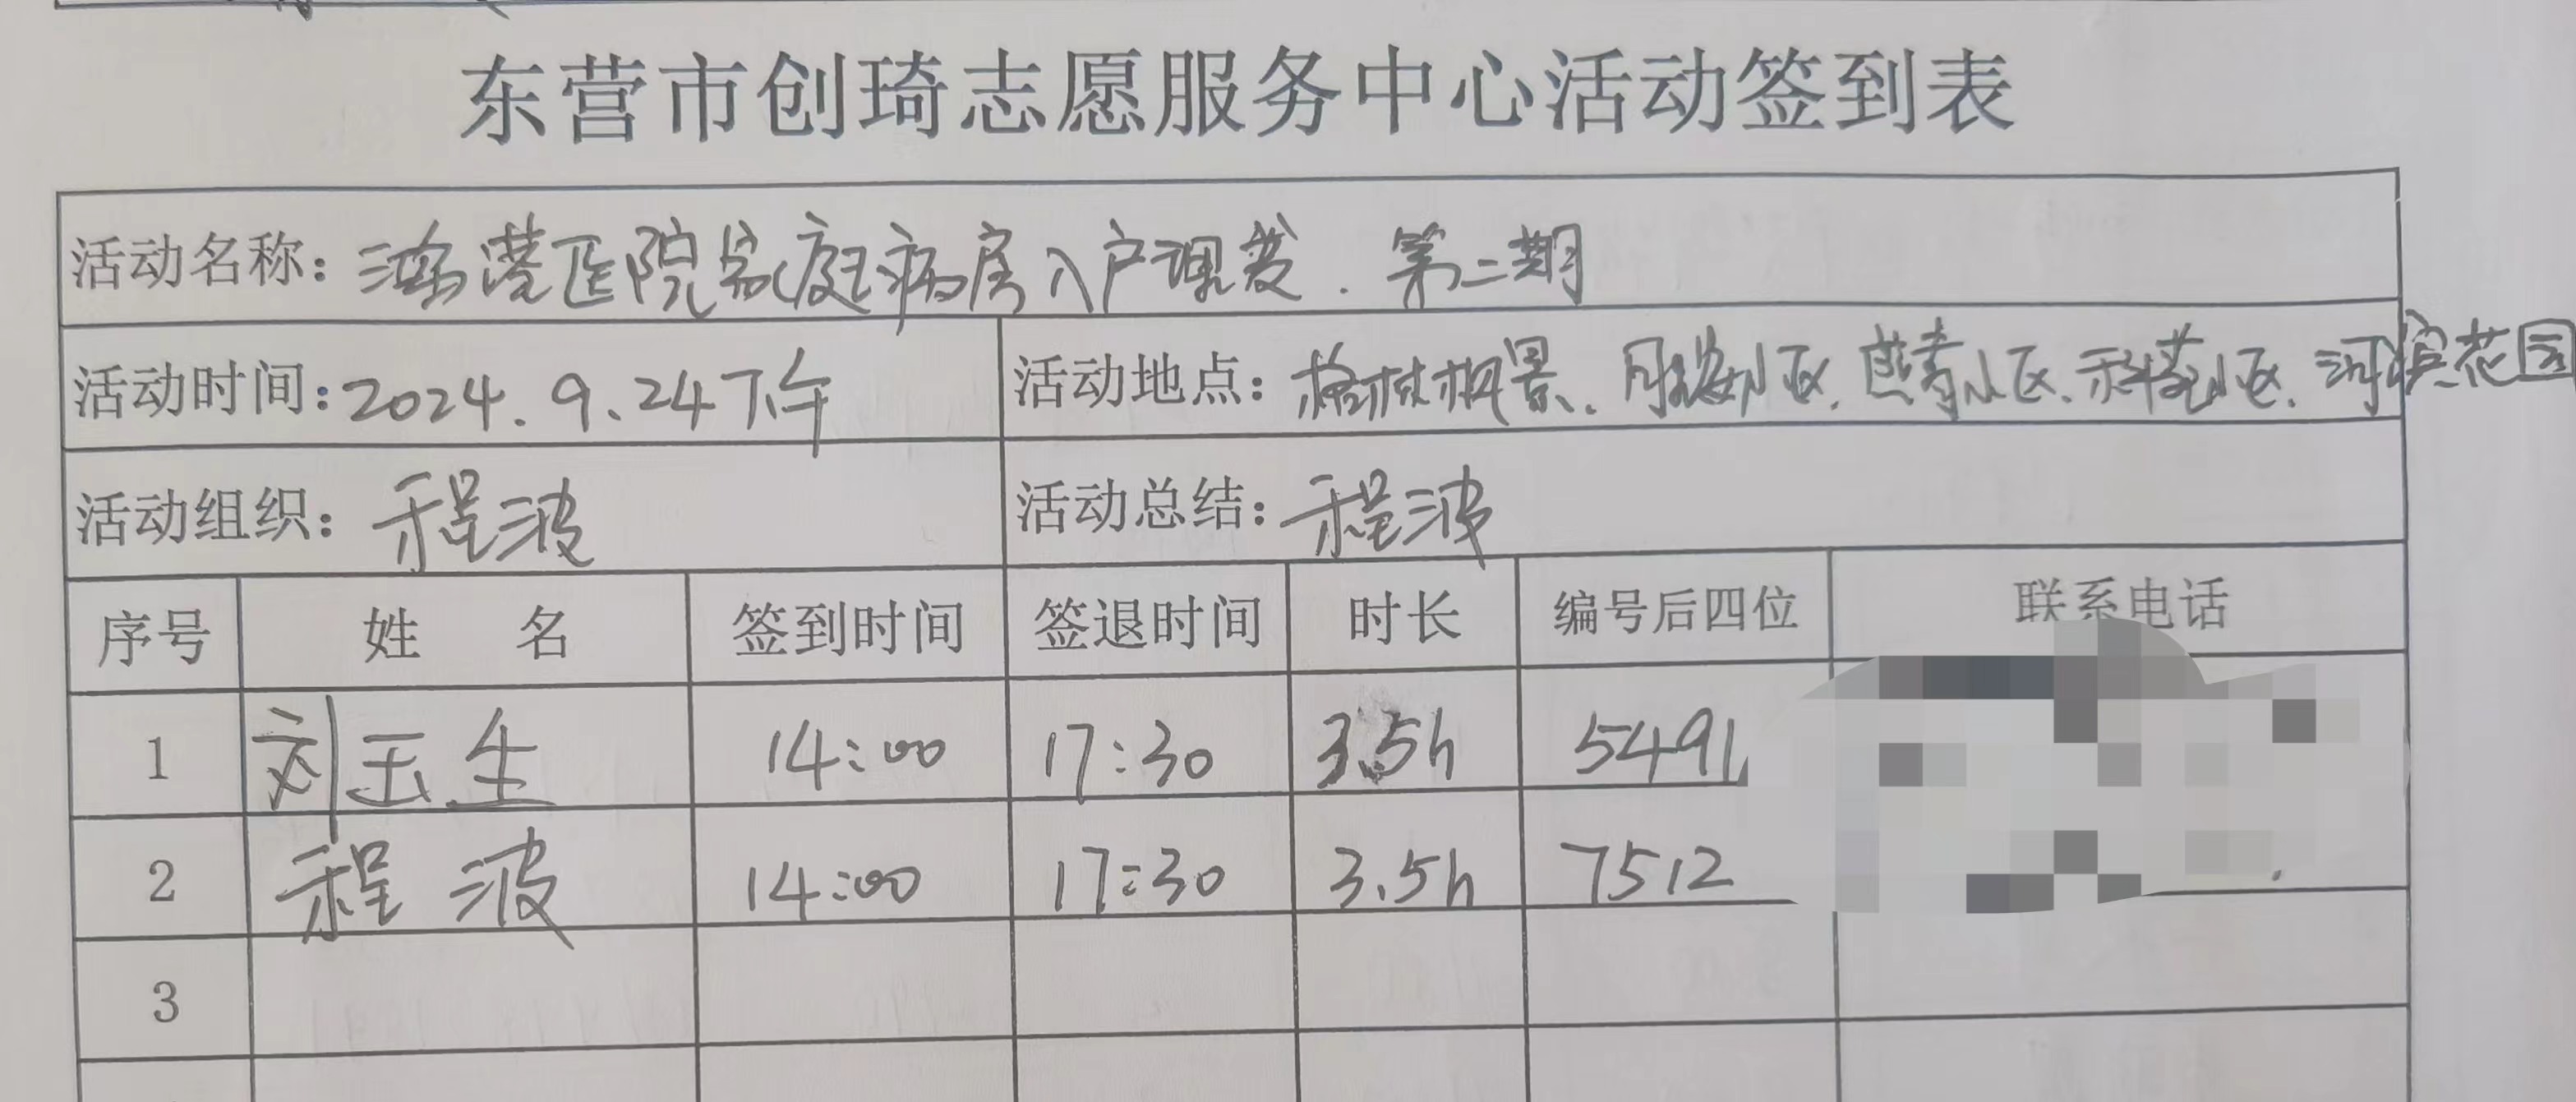 东营市创琦志愿服务中心活动签到表
活动名称：鸿港医院家庭病房入户理发．第二期
活动时间：2024.9.24下午 活动地点：格林枫景、小区、小区、科苑小区、河滨花园
活动组织：程波 活动总结：程波
序号 姓名 签到时间 签退时间 时长 编号后四位 联系电话
1 刘玉生 14:00 17:30 3.5h 5491
2 程波 14:00 17:30 3.5h 7512
3